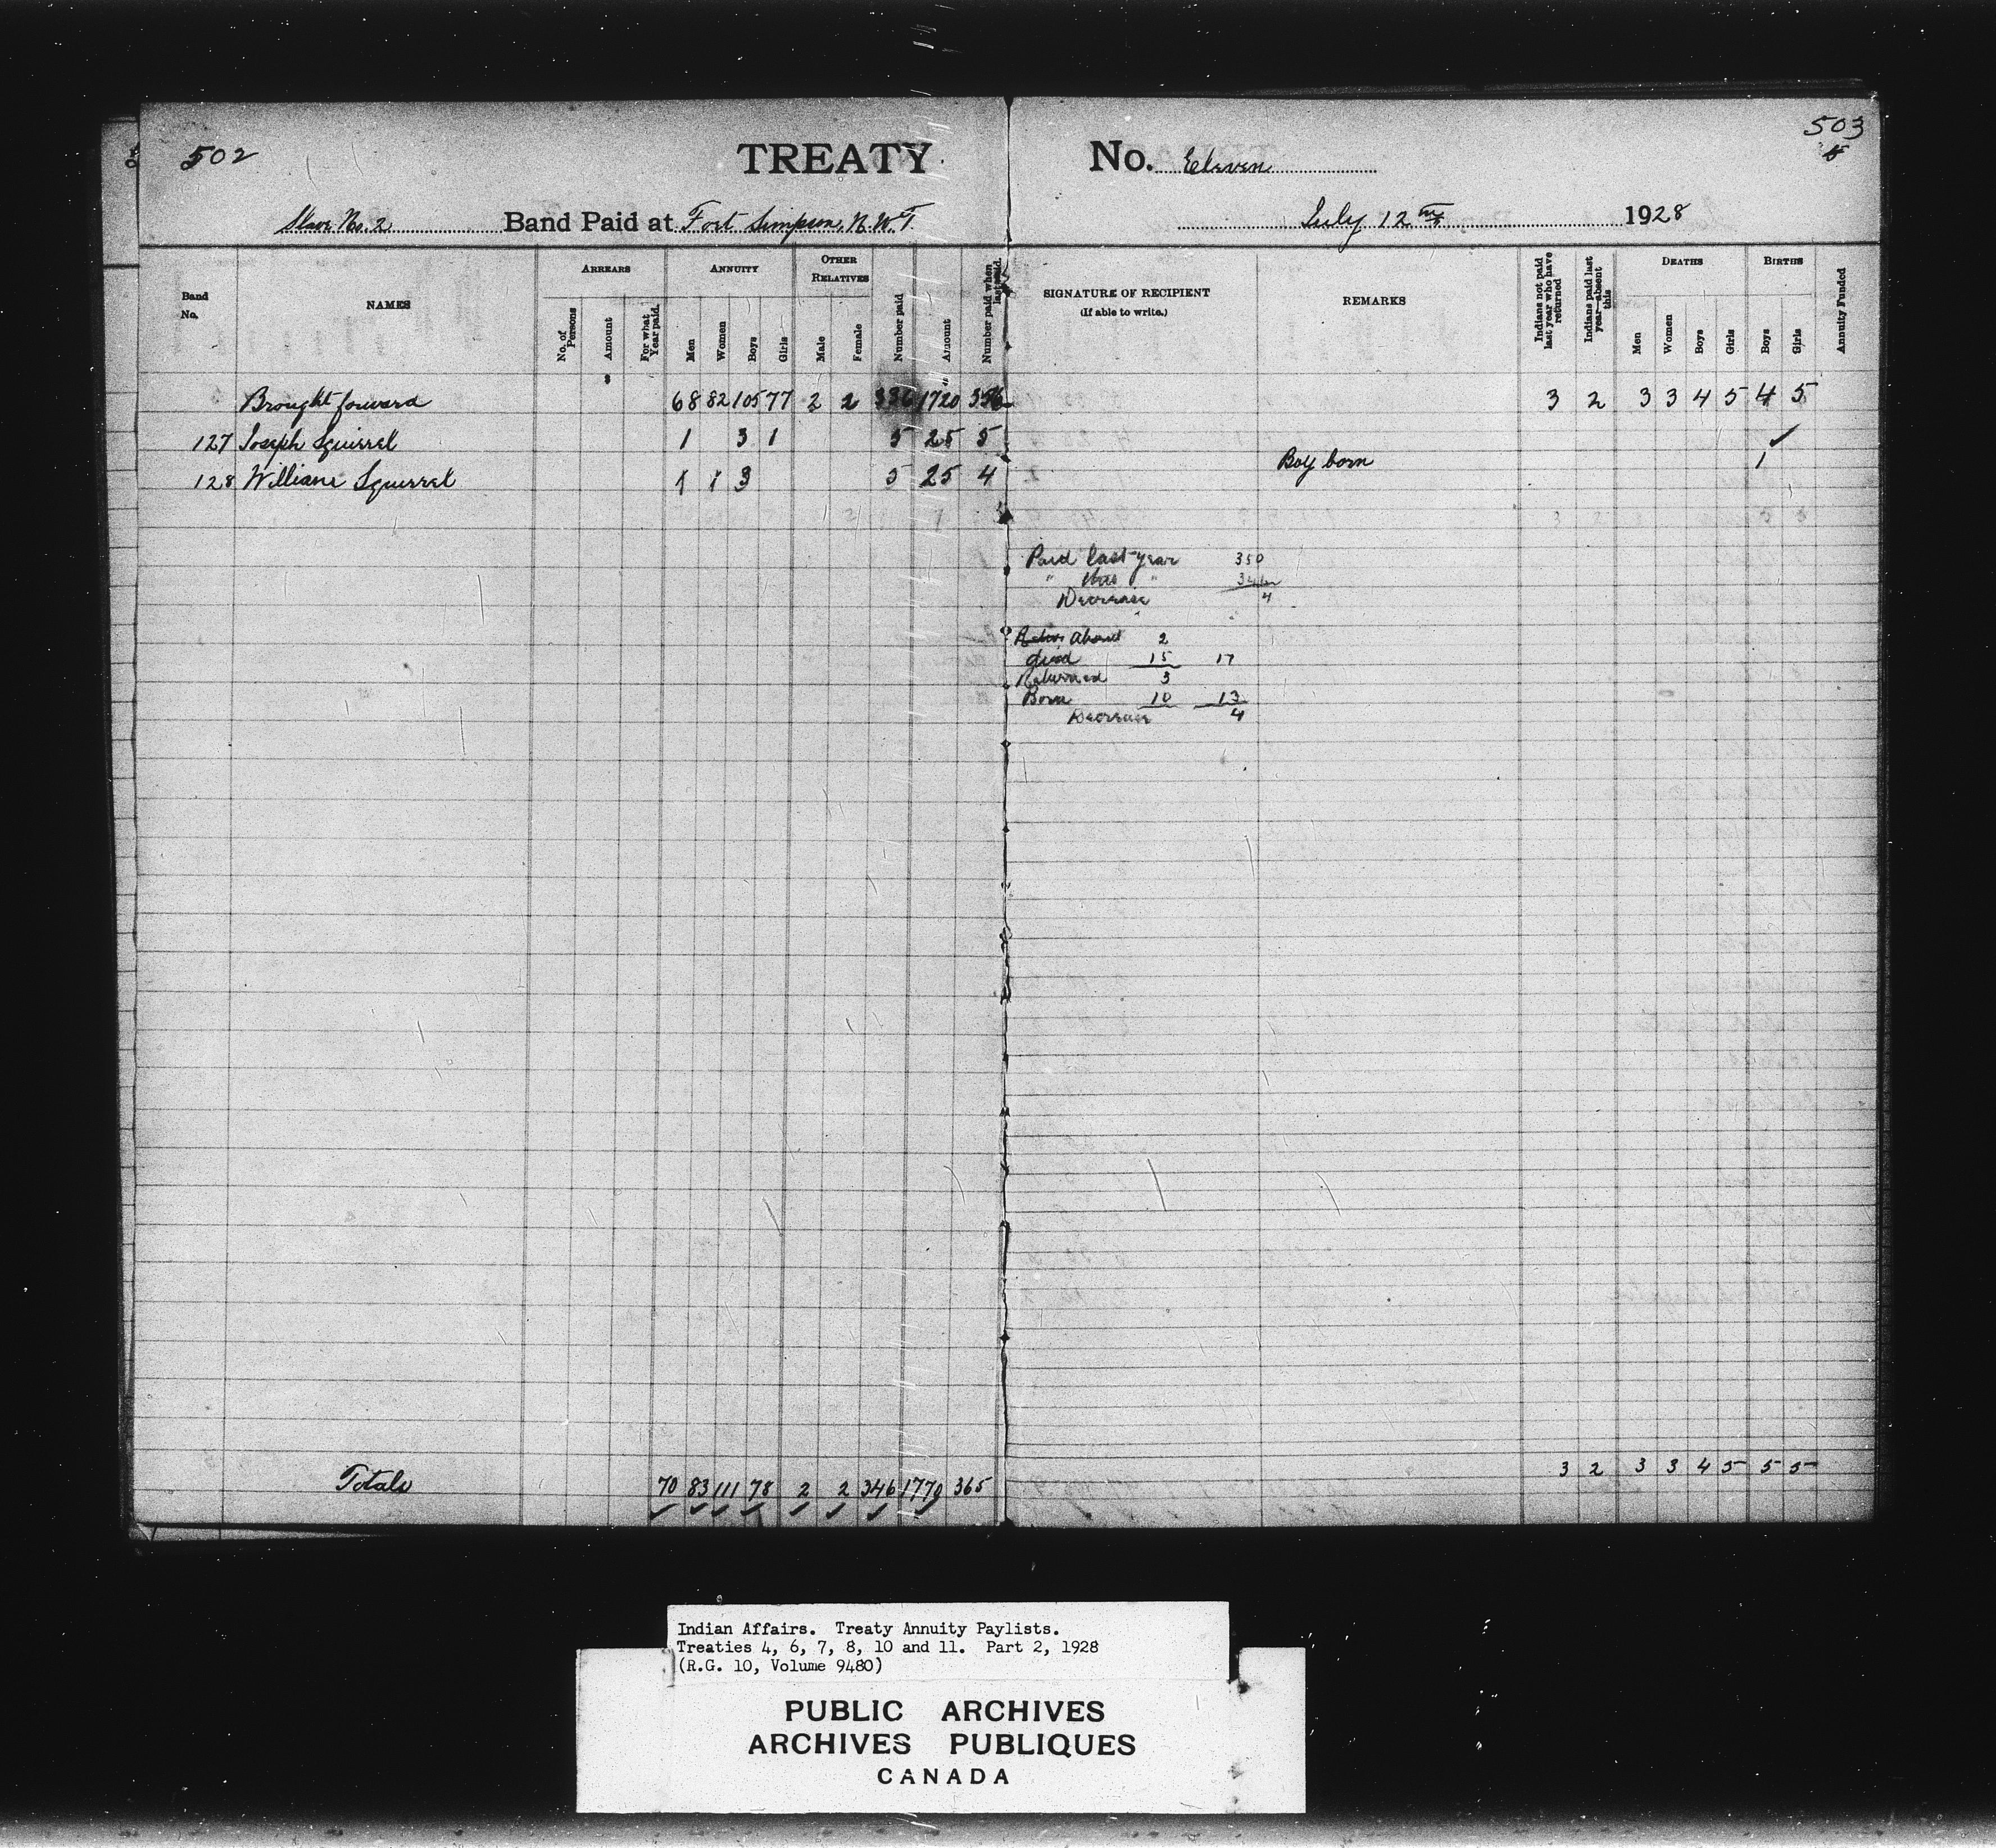 502
503
TREATY No. Eleven
Slave No. 2 Band Paid at Fort Simpson, N.W.T. July 12th 1928
Band No.
NAMES
ARREARS
No. of Persons
Amount
For what Year paid.
ANNUITY
Men
Women
Boys
Girls
OTHER RELATIVES
Male
Female
Number paid
Amount
Number paid when last paid.
SIGNATURE OF RECIPIENT
(If able to write.)
REMARKS
Indians not paid last year who have returned
Indians paid last year—absent this
DEATHS
Men
Women
Boys
Girls
BIRTHS
Boys
Girls
Annuity Funded
$
Brought forward 68 82 105 77 2 2 336 1720 356 3 2 3 3 4 5 4 5
127 Joseph Squirrel 1 3 1 5 25 5
128 William Squirrel 1 1 3 5 25 4 Boy born 1
Paid last year 350
" this " 346
Decrease 4
Absent 2
died 15 17
Returned 3
Born 10 13
Decrease 4
Totals 70 83 111 78 2 2 346 1770 365 3 2 3 3 4 5 5 5
Indian Affairs. Treaty Annuity Paylists.
Treaties 4, 6, 7, 8, 10 and 11. Part 2, 1928
(R.G. 10, Volume 9480)
PUBLIC ARCHIVES
ARCHIVES PUBLIQUES
CANADA